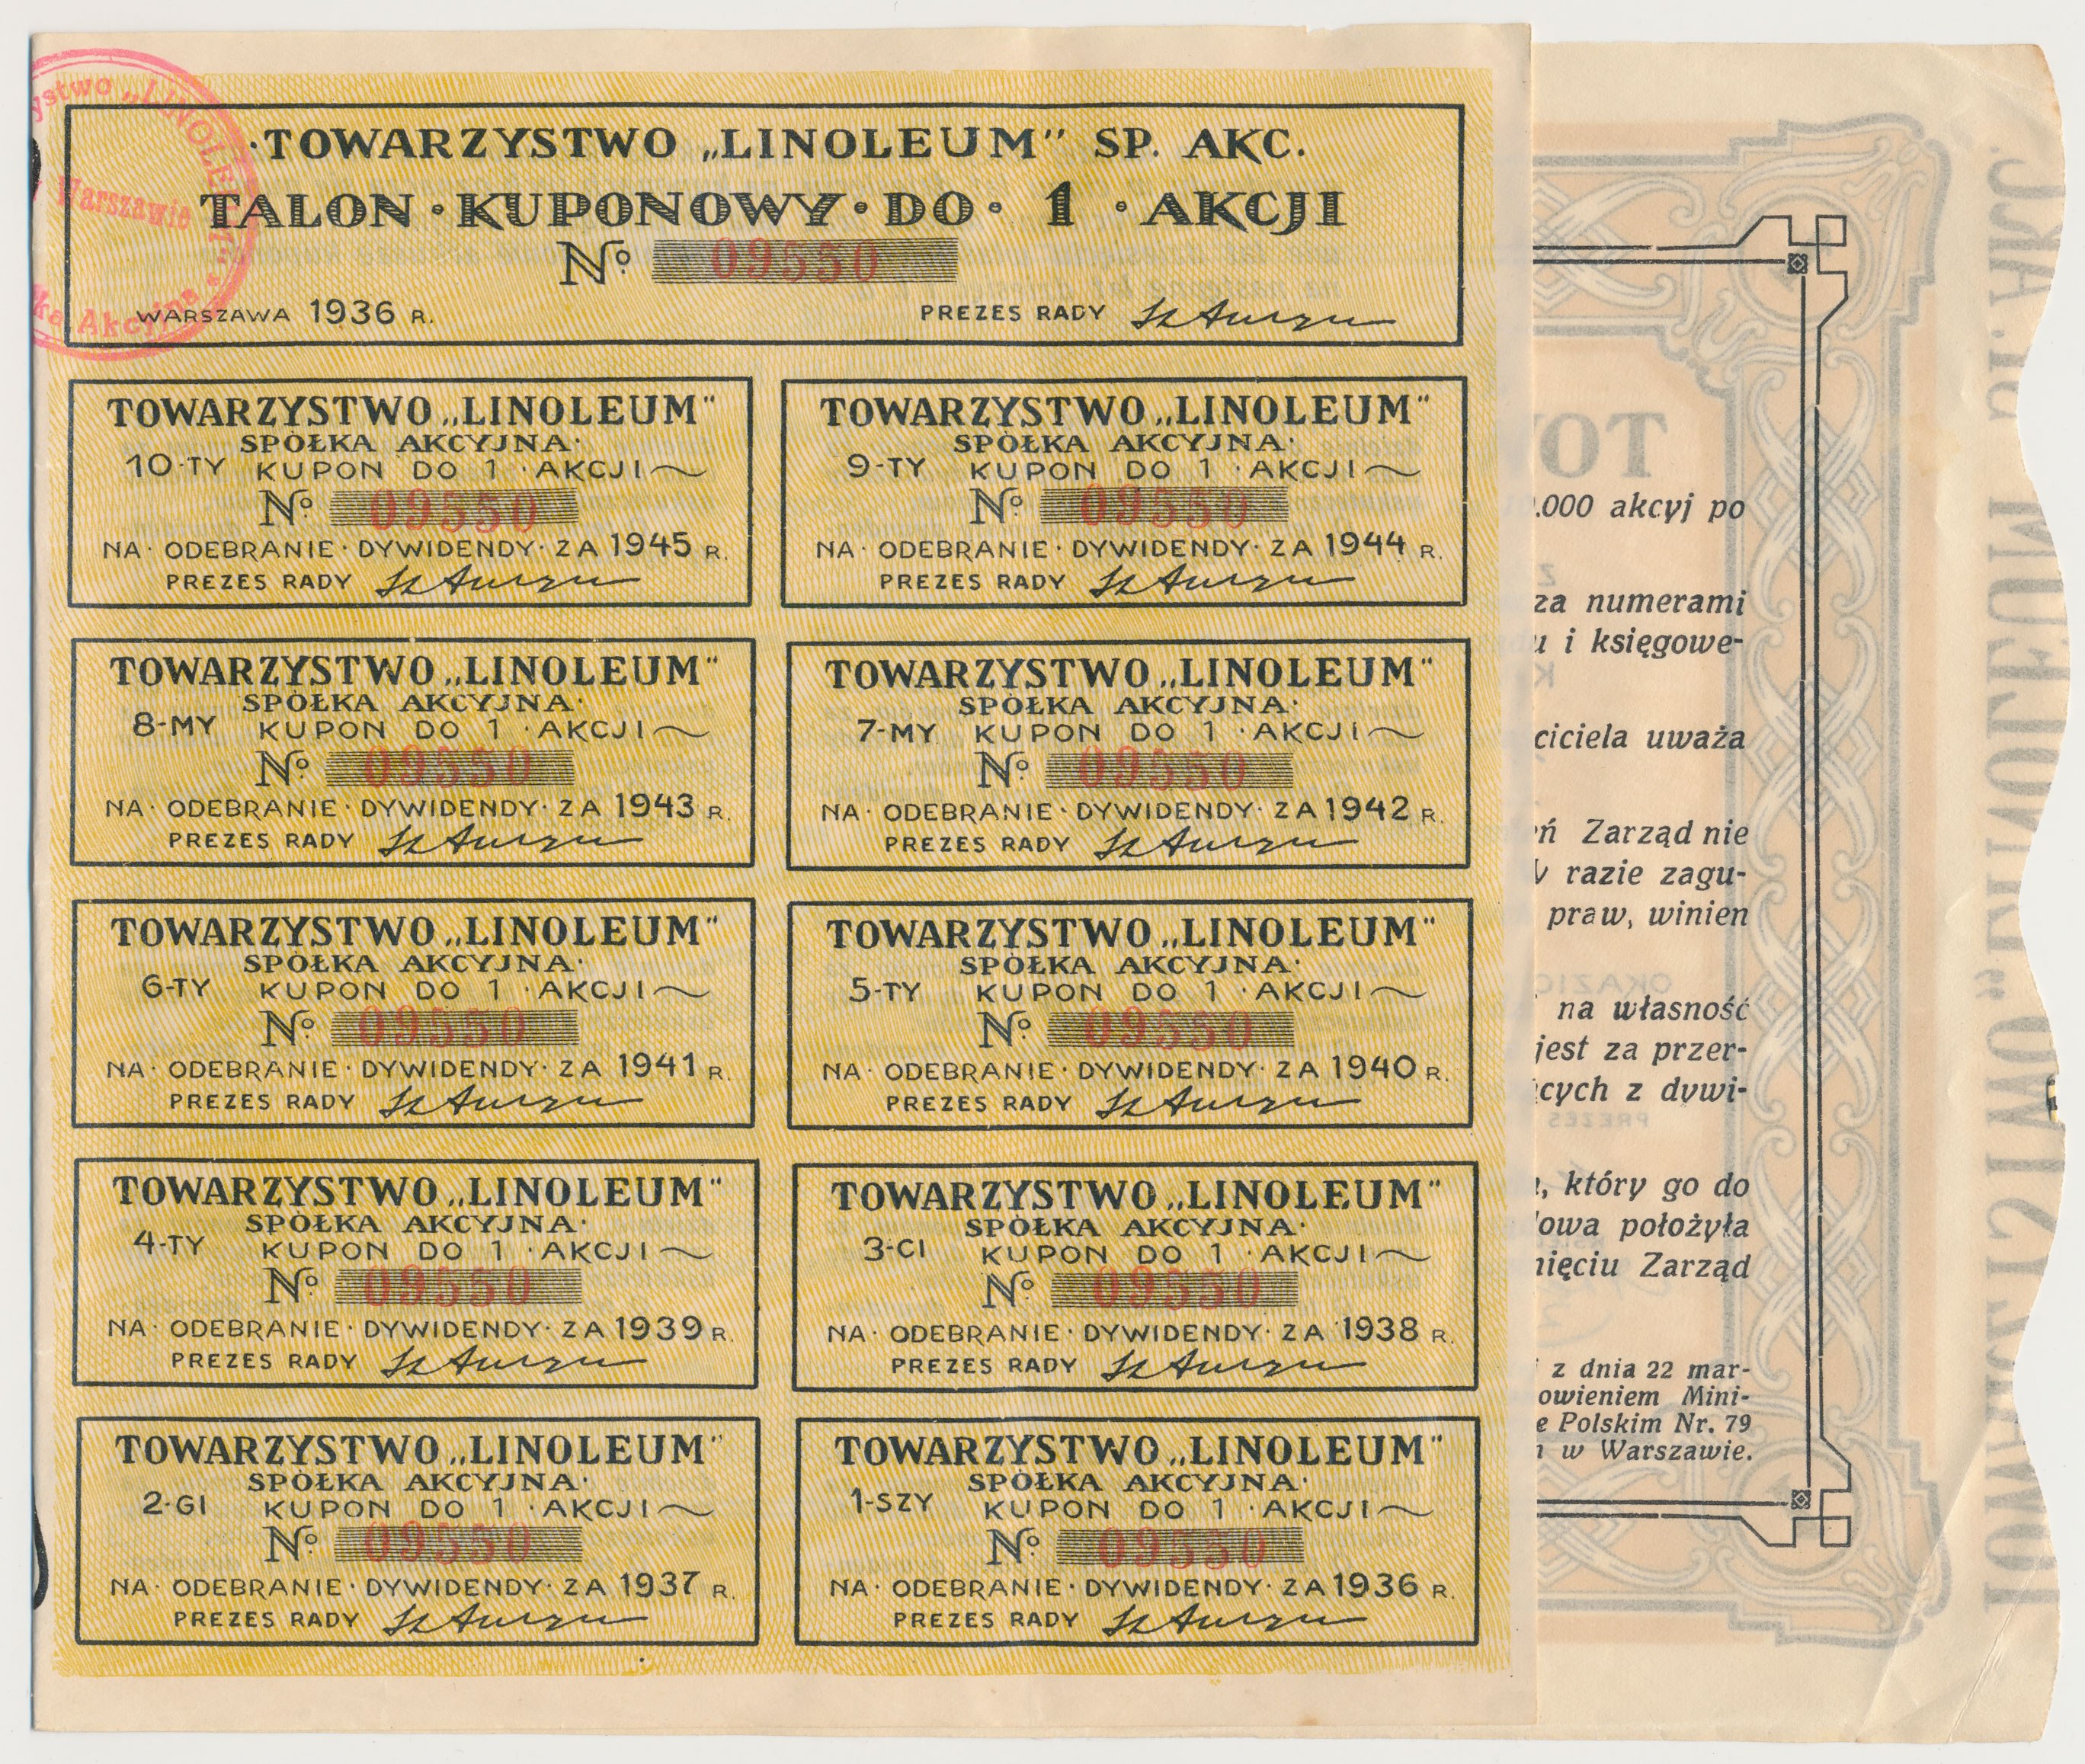 ystwo „LINOLEUM"
Warszawie
ka Akcyjna
·TOWARZYSTWO „LINOLEUM" SP. AKC.
TALON · KUPONOWY · DO · 1 · AKCJI
Nº 09550
WARSZAWA 1936 R.
PREZES RADY
TOWARZYSTWO „LINOLEUM"
SPÓŁKA AKCYJNA·
10-TY KUPON DO 1 · AKCJI
Nº 09550
NA · ODEBRANIE · DYWIDENDY · ZA 1945 R.
PREZES RADY
TOWARZYSTWO „LINOLEUM"
SPÓŁKA AKCYJNA·
9-TY KUPON DO 1 · AKCJI
Nº 09550
NA · ODEBRANIE · DYWIDENDY · ZA 1944 R.
PREZES RADY
TOWARZYSTWO „LINOLEUM"
SPÓŁKA AKCYJNA·
8-MY KUPON DO 1 · AKCJI
Nº 09550
NA · ODEBRANIE · DYWIDENDY · ZA 1943 R.
PREZES RADY
TOWARZYSTWO „LINOLEUM"
SPÓŁKA AKCYJNA·
7-MY KUPON DO 1 · AKCJI
Nº 09550
NA · ODEBRANIE · DYWIDENDY · ZA 1942 R.
PREZES RADY
TOWARZYSTWO „LINOLEUM"
SPÓŁKA AKCYJNA·
6-TY KUPON DO 1 · AKCJI
Nº 09550
NA · ODEBRANIE · DYWIDENDY · ZA 1941 R.
PREZES RADY
TOWARZYSTWO „LINOLEUM"
SPÓŁKA AKCYJNA·
5-TY KUPON DO 1 · AKCJI
Nº 09550
NA · ODEBRANIE · DYWIDENDY · ZA 1940 R.
PREZES RADY
TOWARZYSTWO „LINOLEUM"
SPÓŁKA AKCYJNA·
4-TY KUPON DO 1 · AKCJI
Nº 09550
NA · ODEBRANIE · DYWIDENDY · ZA 1939 R.
PREZES RADY
TOWARZYSTWO „LINOLEUM"
SPÓŁKA AKCYJNA·
3-CI KUPON DO 1 · AKCJI
Nº 09550
NA · ODEBRANIE · DYWIDENDY · ZA 1938 R.
PREZES RADY
TOWARZYSTWO „LINOLEUM"
SPÓŁKA AKCYJNA·
2-GI KUPON DO 1 · AKCJI
Nº 09550
NA · ODEBRANIE · DYWIDENDY · ZA 1937 R.
PREZES RADY
TOWARZYSTWO „LINOLEUM"
SPÓŁKA AKCYJNA·
1-SZY KUPON DO 1 · AKCJI
Nº 09550
NA · ODEBRANIE · DYWIDENDY · ZA 1936 R.
PREZES RADY
.000 akcyj po
za numerami
u i księgowe-
ciciela uważa
ń Zarząd nie
razie zagu-
praw, winien
na własność
jest za przer-
cych z dywi-
, który go do
owa położyła
nięciu Zarząd
z dnia 22 mar-
owieniem Mini-
e Polskim Nr. 79
w Warszawie.